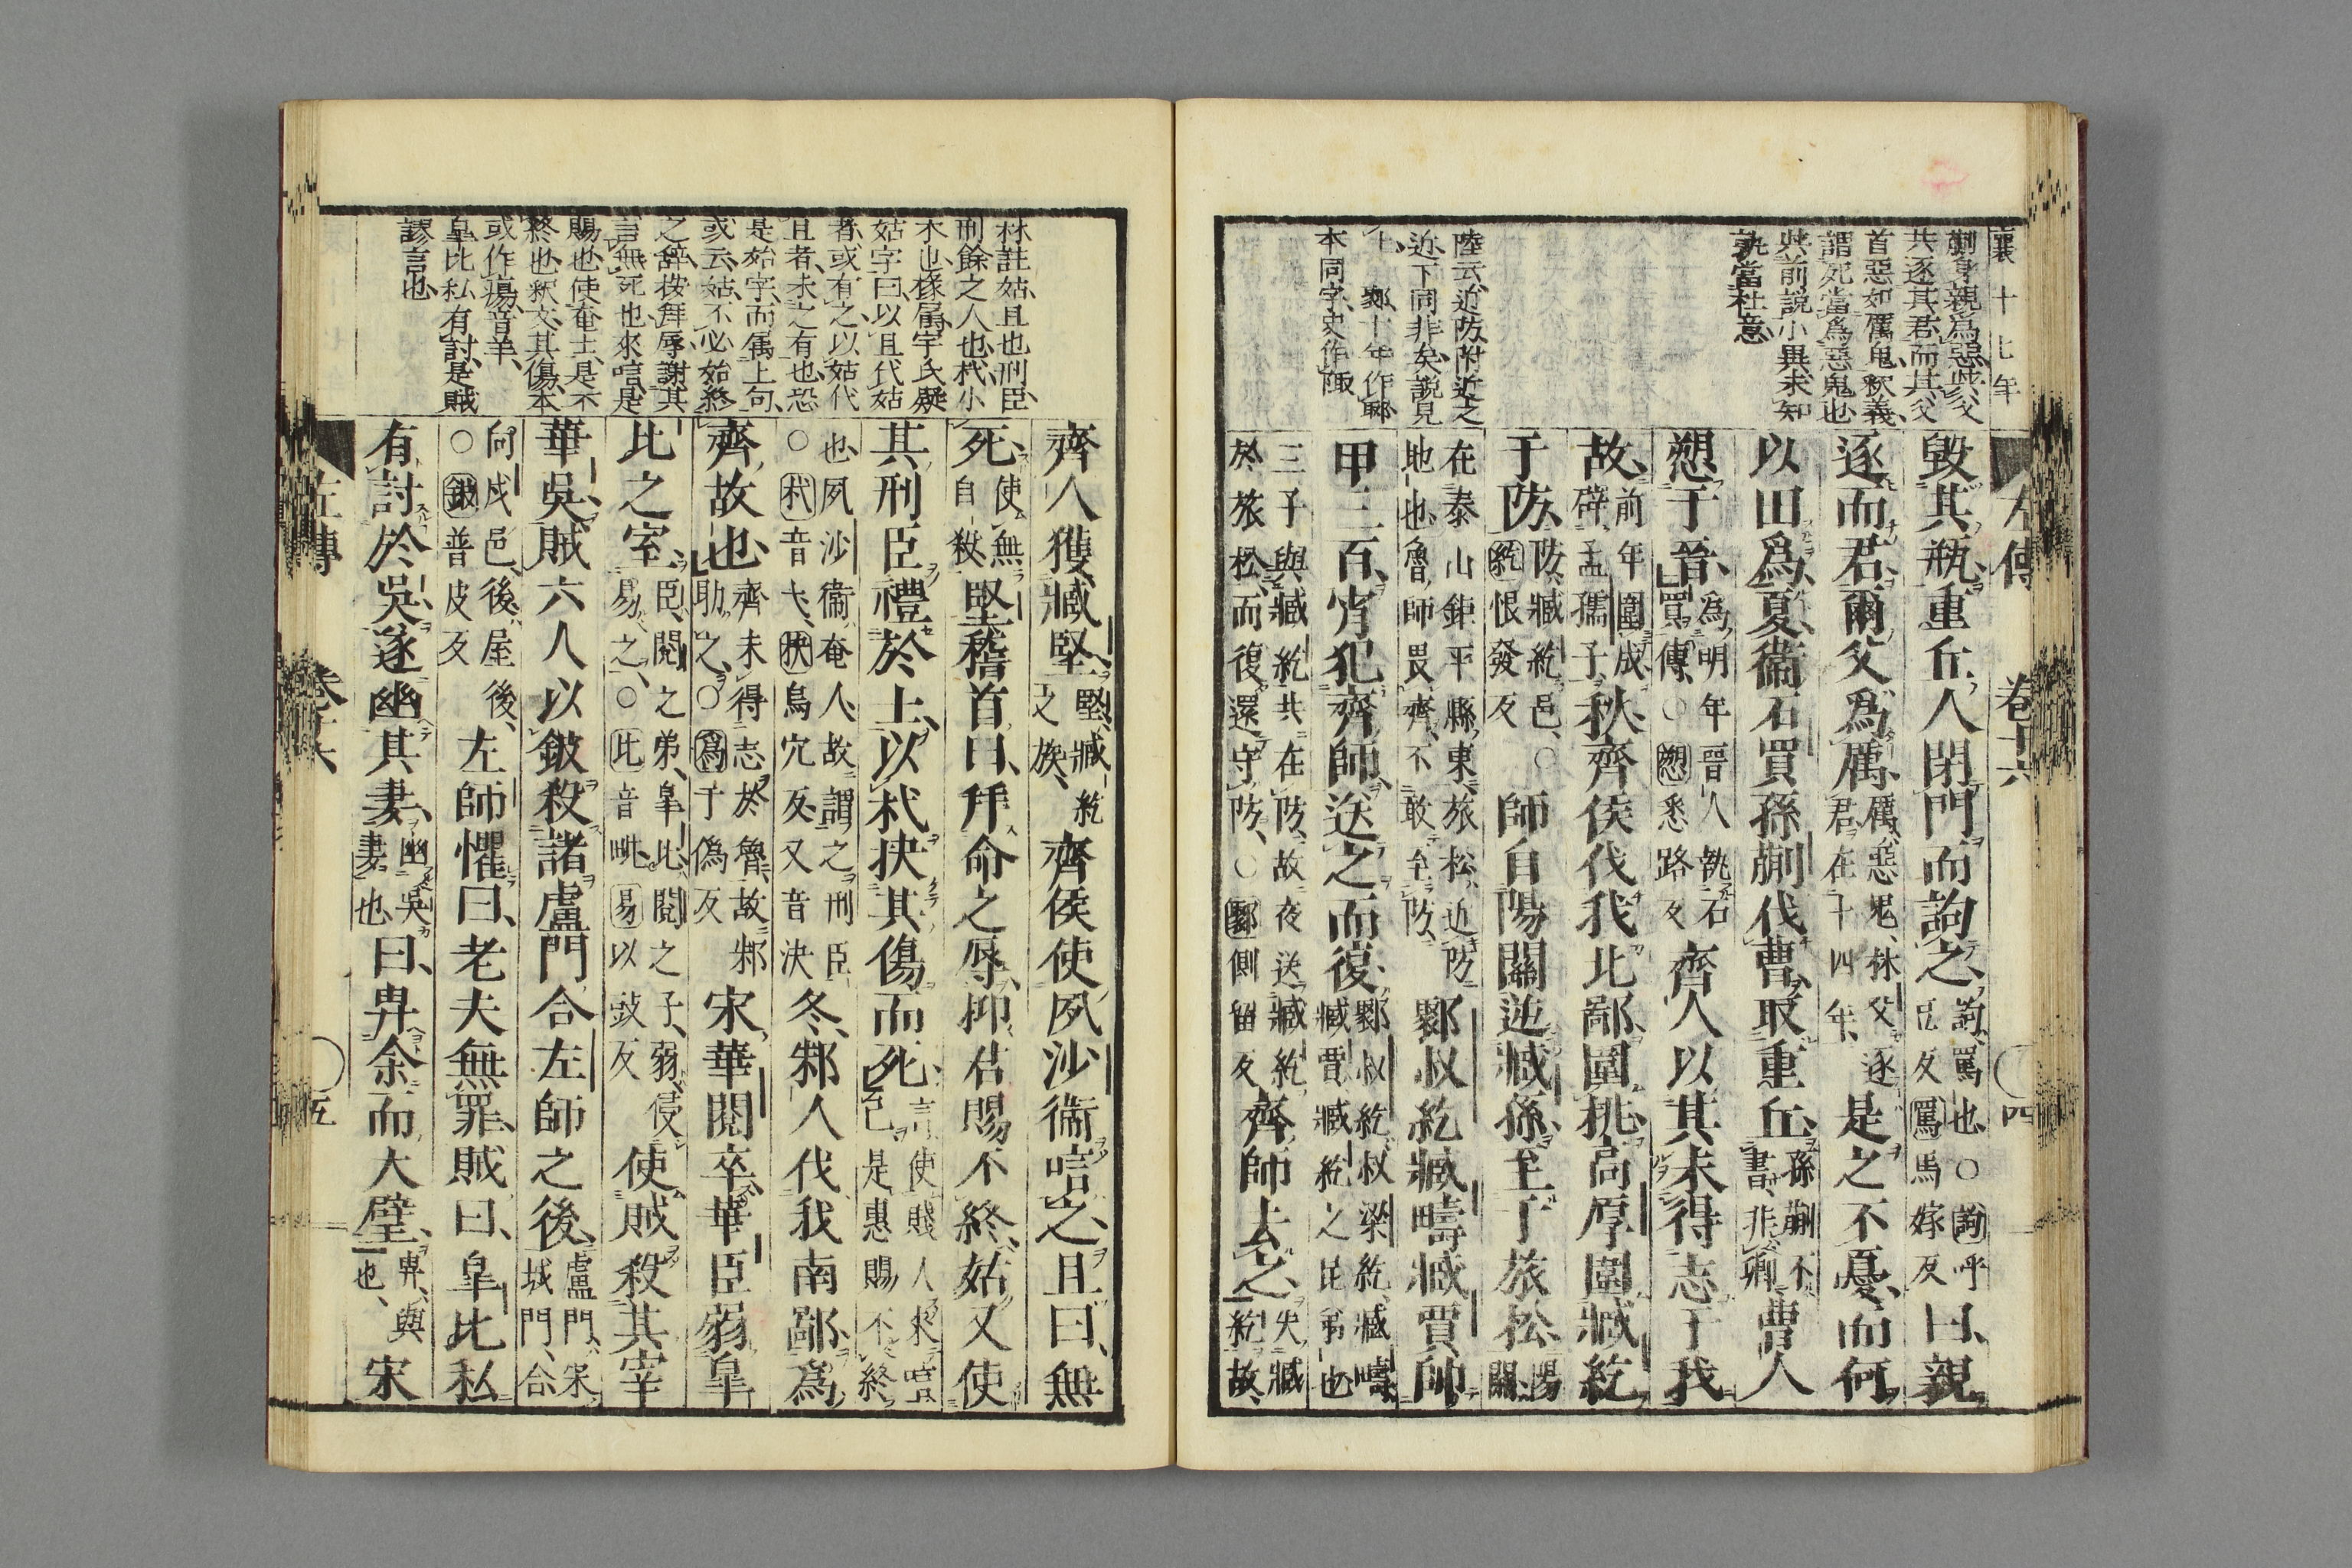 襄十七年
蒯身親爲惡此父
共逐其君而其父
首惡如厲鬼釈義
謂死當爲惡鬼也
與前説小異求知
孰當杜意
陸云近防附近之
近下同非矣説見
上 鄹十年作郰
本同字史作陬
左傳 卷十六 四
毀其瓶重丘人閉門而訽之訽罵也○訽呼豆反罵馬嫁反曰親
逐而君爾父爲厲厲惡鬼林父逐君在十四年是之不憂而何
以田爲夏衞石買孫蒯伐曹取重丘孫蒯不書非卿曹人
愬于晉爲明年晉人執石買傳○愬悉路反齊人以其未得志于我
故前年圍成辟孟孺子秋齊侯伐我北鄙圍桃高厚圍臧紇
于防防臧紇邑○紇恨發反師自陽關逆臧孫至于旅松陽關
在泰山鉅平縣東旅松近防地也魯師畏齊不敢至防鄹叔紇臧疇臧賈帥
甲三百宵犯齊師送之而復鄹叔紇叔梁紇臧疇臧賈臧紇之昆弟也
三子與臧紇共在防故夜送臧紇於旅松而復還守防○鄹側留反齊師去之失臧紇故
林註姑且也刑臣
刑餘之人也杙小
木也椽屬宇氏疑
姑字曰以且代姑
者或有之以姑代
且者未之有也恐
是始字而属上句
或云姑不必始終
之辭按拜辱謝其
言無死也來唁是
賜也使奄士是不
終也釈文其傷本
或作瘍音羊
皐比私有討是賊
謬言也
齊人獲臧堅堅臧紇之族齊侯使夙沙衞唁之且曰無
死使無自殺堅稽首曰拜命之辱抑君賜不終姑又使
其刑臣禮於士以杙抉其傷而死言使賤人來唁己是惠賜不終
也夙沙衞奄人故謂之刑臣○杙音弋抉烏穴反又音決冬邾人伐我南鄙爲
齊故也齊未得志於魯故邾助之○爲于僞反宋華閱卒華臣弱皐
比之室臣閱之弟皐比閱之子弱侵易之○比音毗易以豉反使賊殺其宰
華吳賊六人以鈹殺諸盧門合左師之後盧門宋城門合
向戌邑後屋後○鈹普皮反左師懼曰老夫無罪賊曰皐比私
有討於吳遂幽其妻幽吳妻也曰畀余而大璧畀與也宋
左傳 卷十六 五